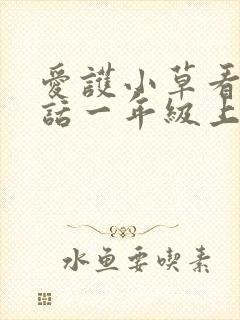 愛護小草看
話一年級上
水魚要喫素